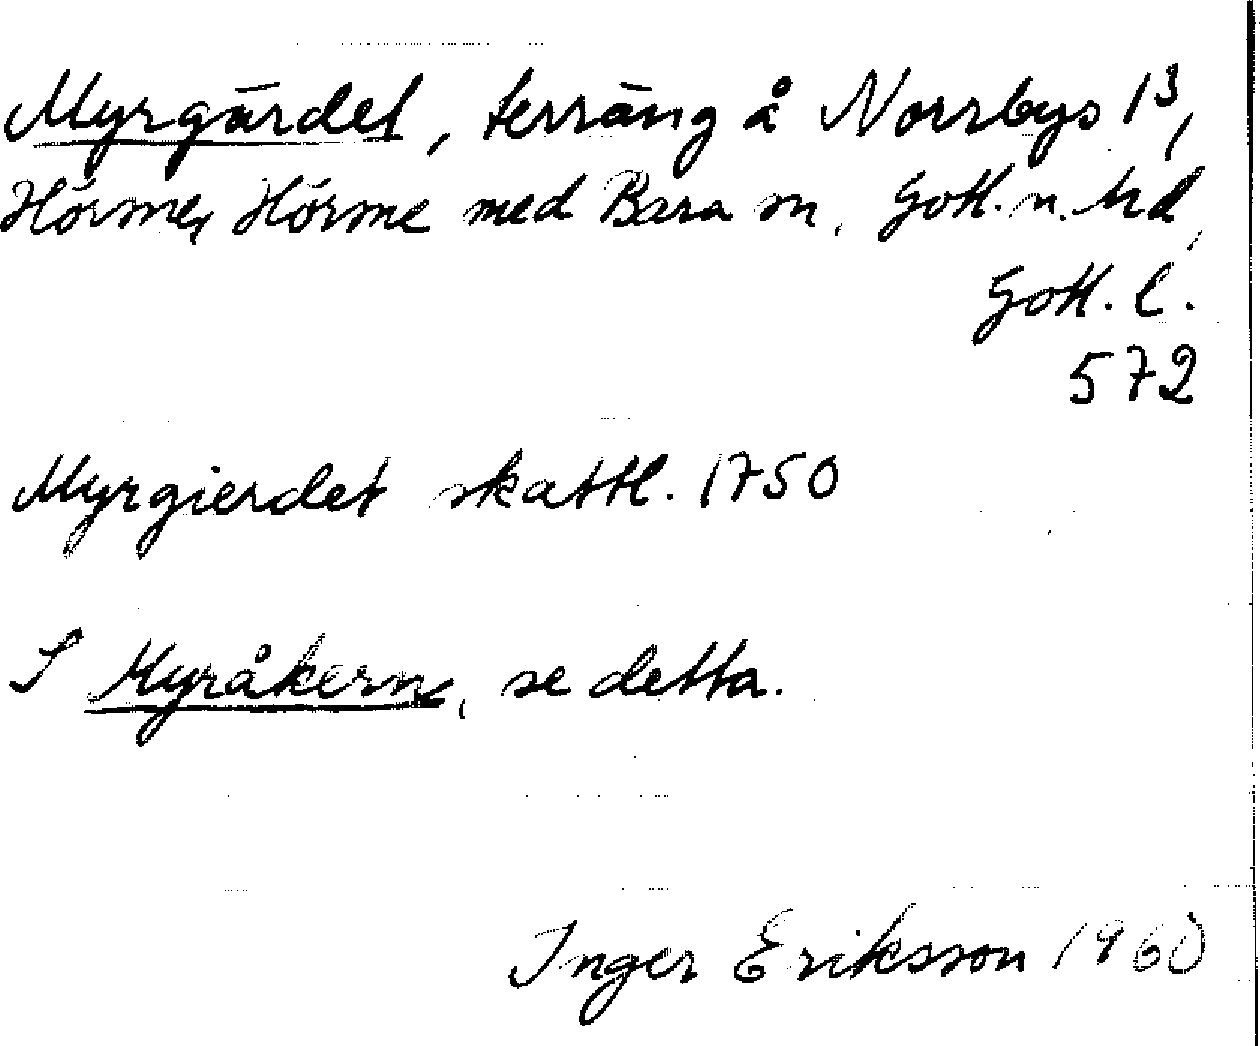 Myrgärdet, terräng å Norrbys 1³,
Hörsne, Hörsne med Bara sn, Gotl. n. hd,
Gotl. l.
572
Myrgierdet skattl. 1750
S Myråkern, se detta.
Inger Eriksson 1960